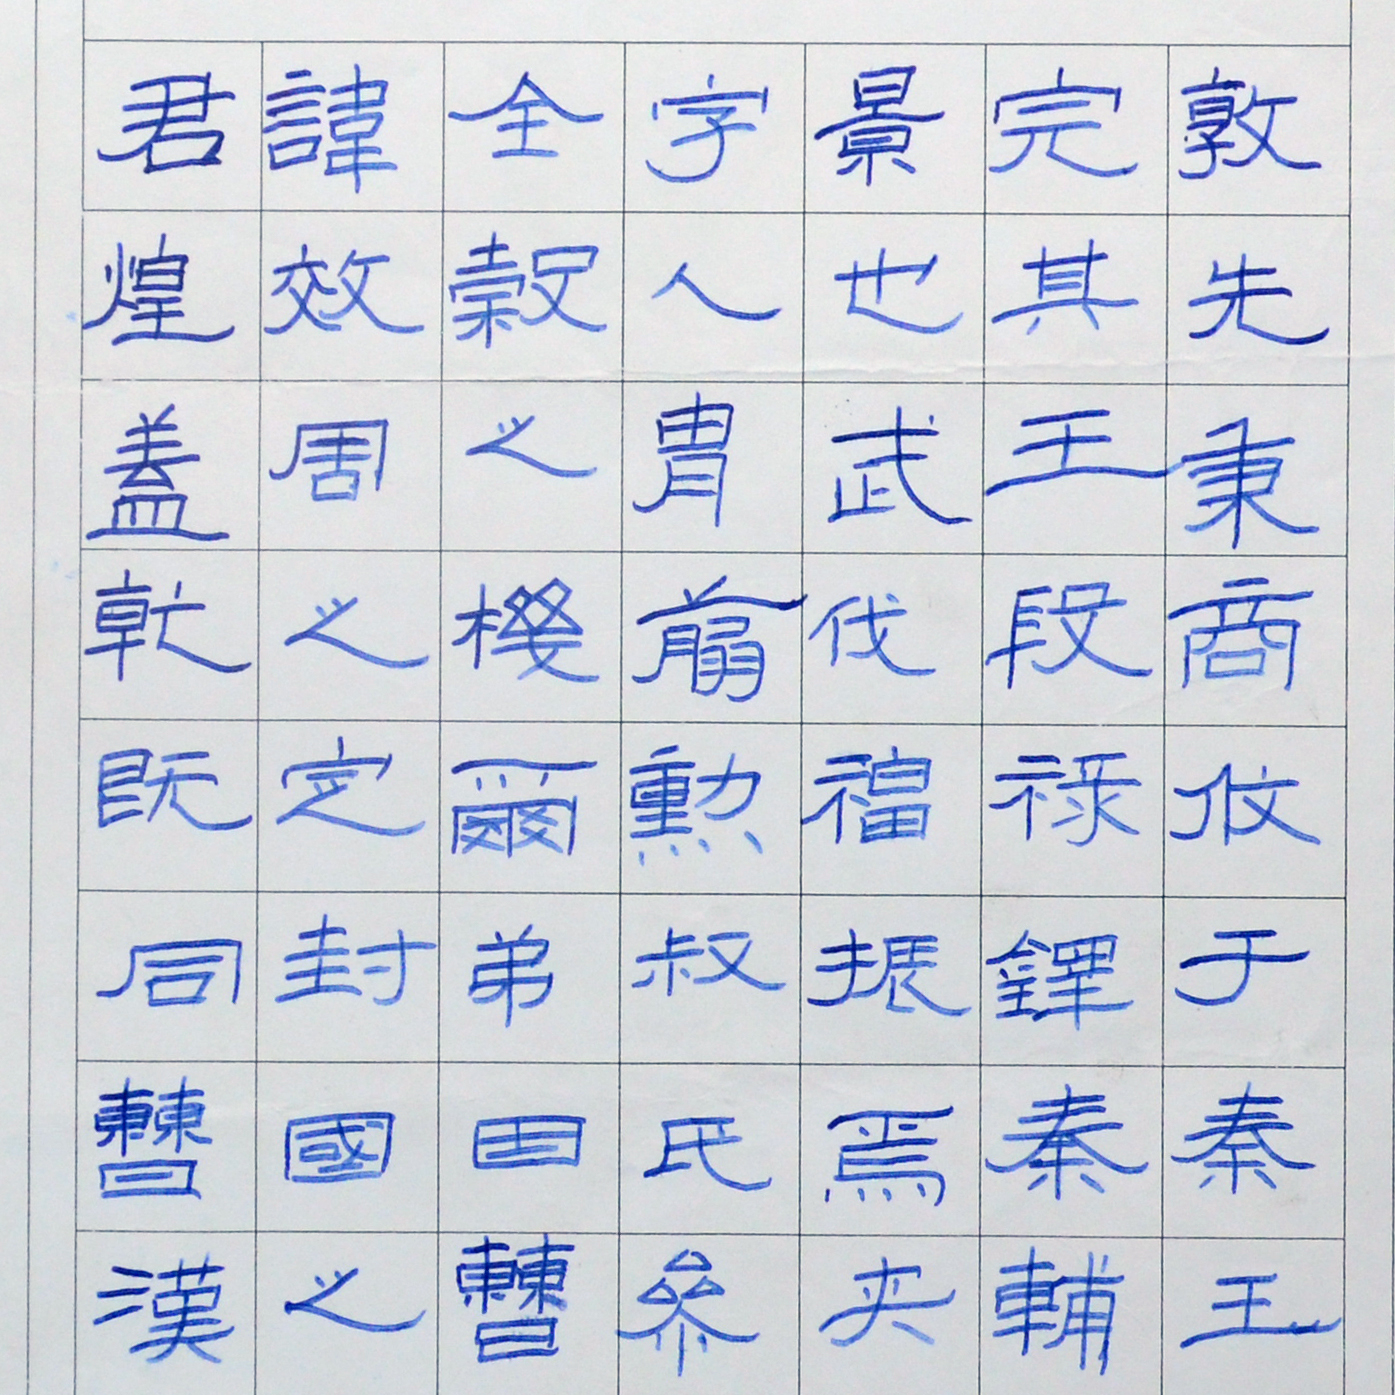 君諱全字景完敦
煌效穀人也其先
蓋周之胄武王秉
乾之機翦伐殷商
既定爾勳福祿攸
同封弟叔振鐸于
曹國因氏焉秦秦
漢之曹參夾輔王